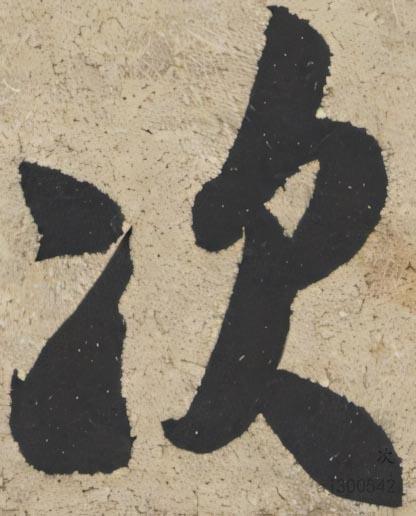 次
次
1300542